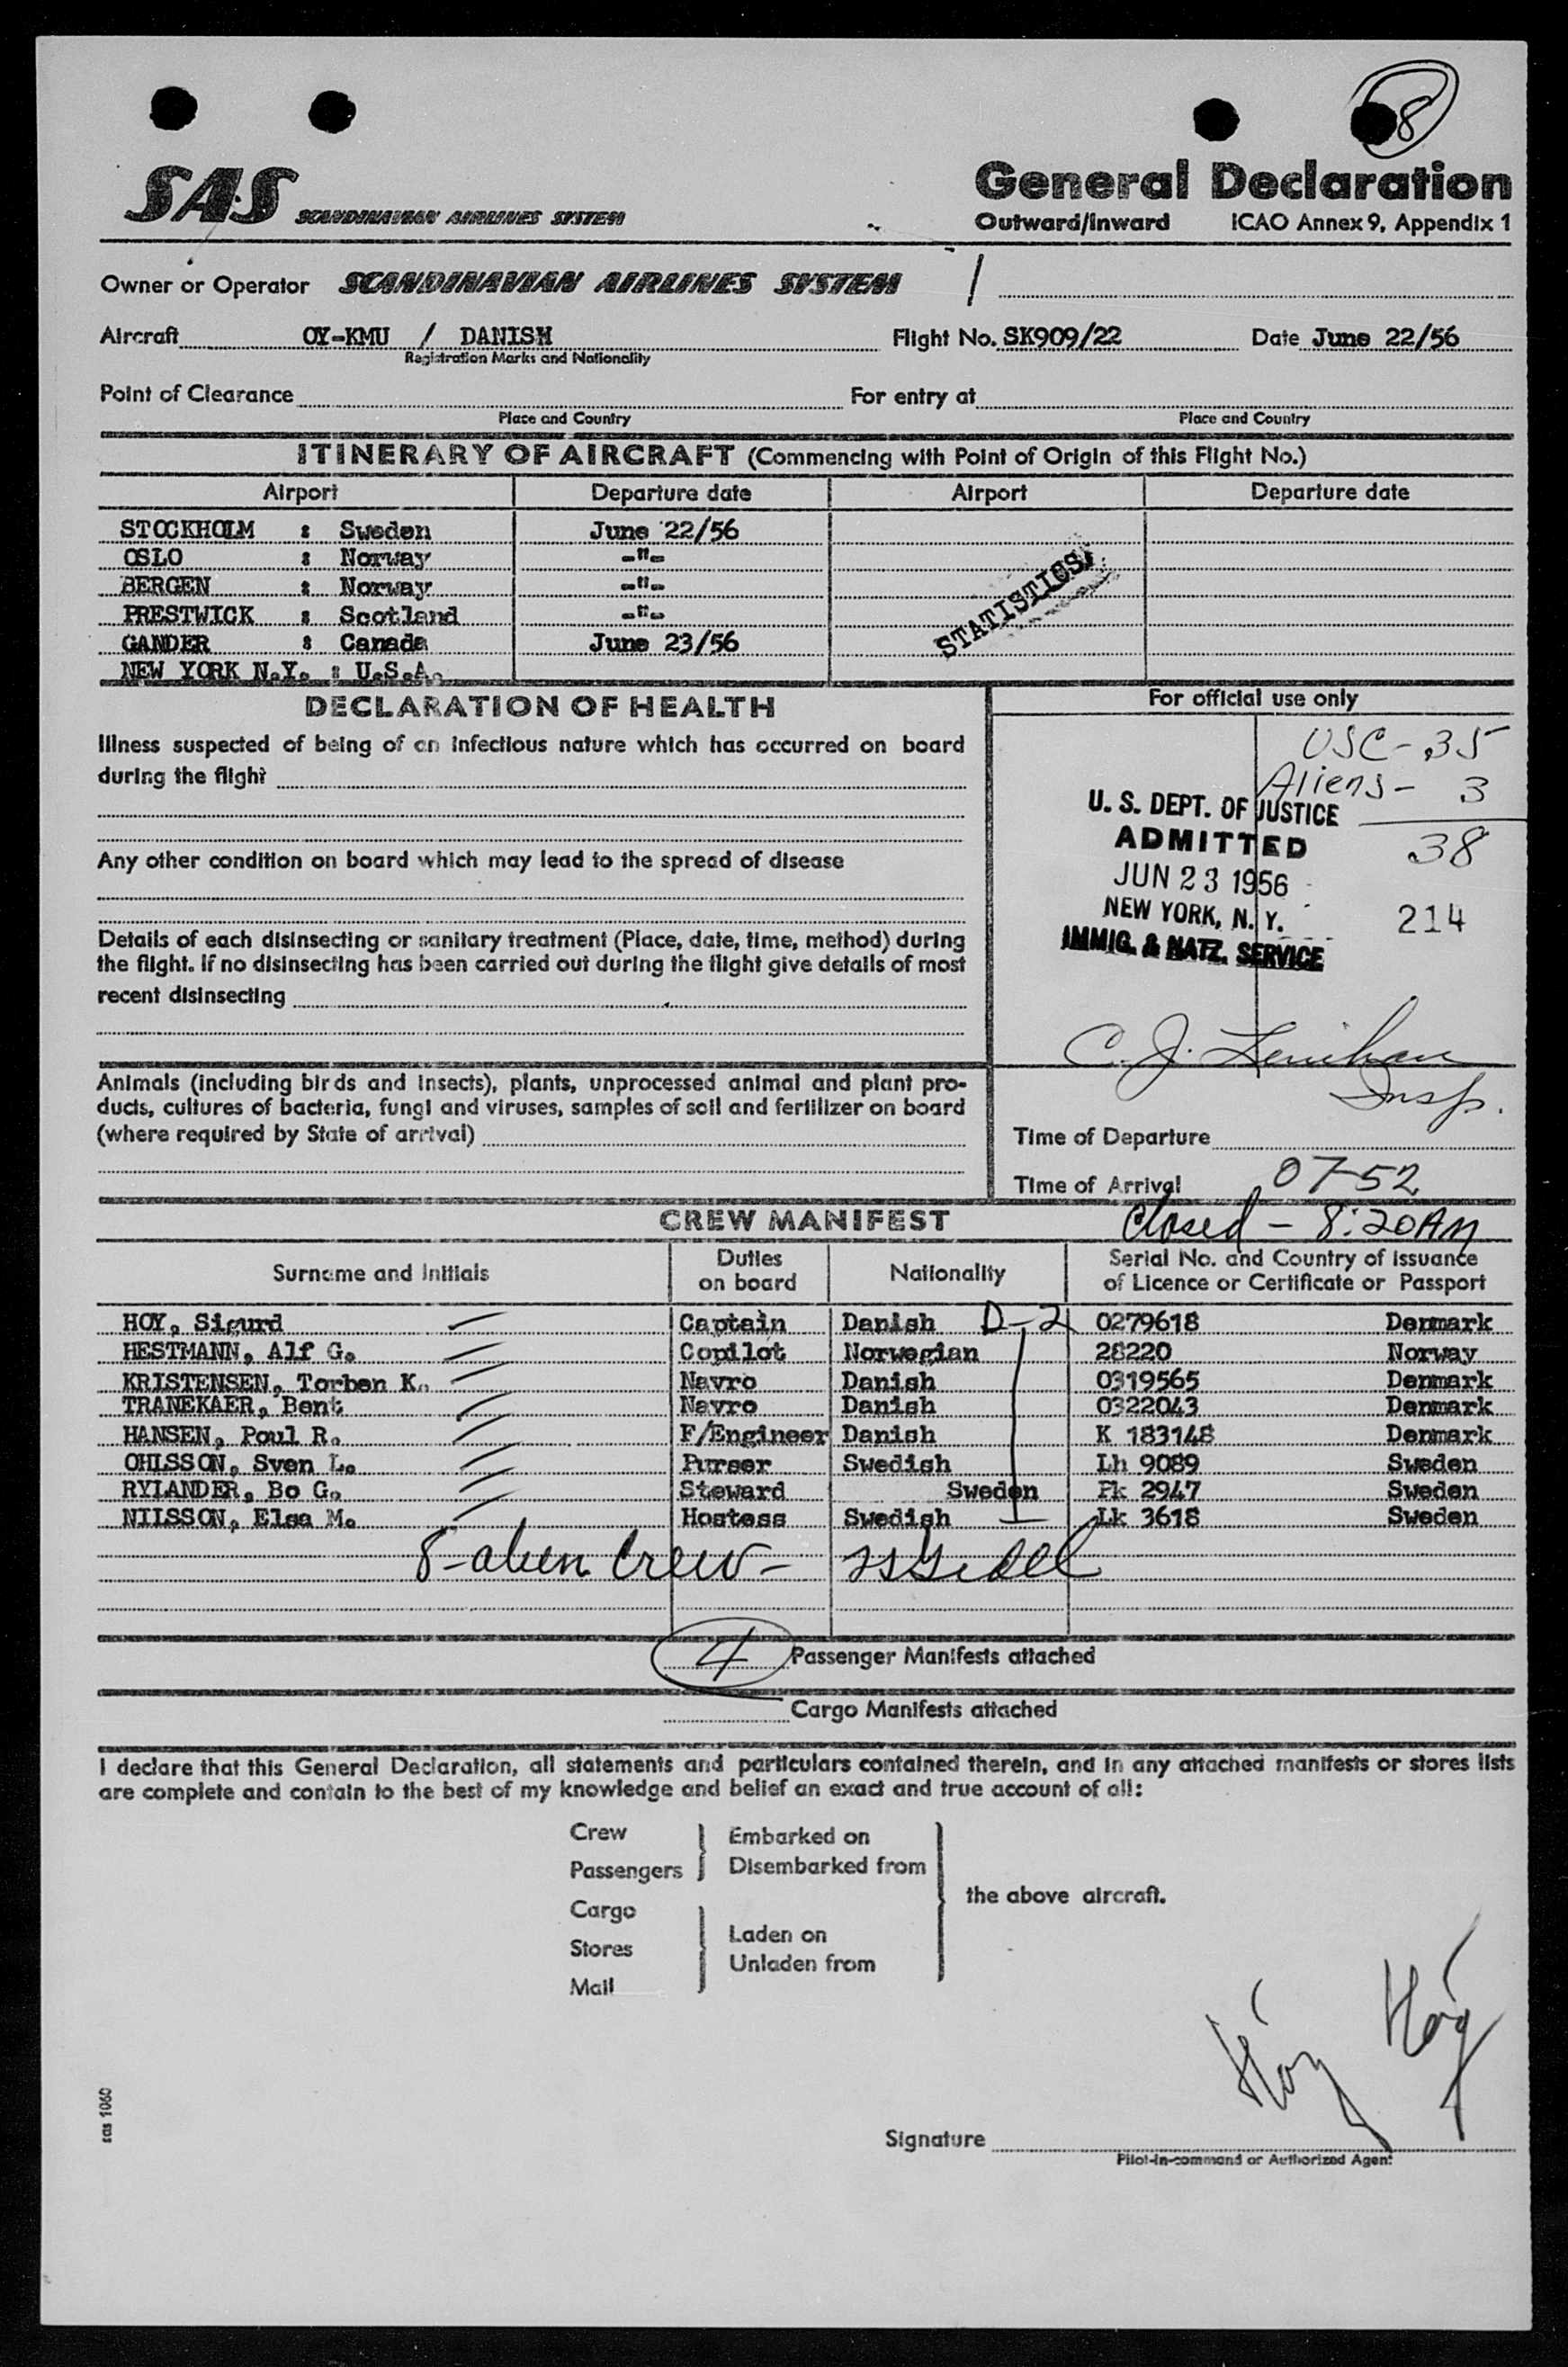 8
SAS SCANDINAVIAN AIRLINES SYSTEM
General Declaration
Outward/Inward ICAO Annex 9, Appendix 1
Owner or Operator SCANDINAVIAN AIRLINES SYSTEM
Aircraft OY-KMU / DANISH Flight No. SK909/22 Date June 22/56
Registration Marks and Nationality
Point of Clearance For entry at
Place and Country Place and Country
ITINERARY OF AIRCRAFT (Commencing with Point of Origin of this Flight No.)
Airport Departure date Airport Departure date
STOCKHOLM : Sweden June 22/56
OSLO : Norway -"-
BERGEN : Norway -"-
PRESTWICK : Scotland -"-
GANDER : Canada June 23/56
NEW YORK N.Y. : U.S.A.
STATISTICS
DECLARATION OF HEALTH
Illness suspected of being of an infectious nature which has occurred on board
during the flight
Any other condition on board which may lead to the spread of disease
Details of each disinsecting or sanitary treatment (Place, date, time, method) during
the flight. If no disinsecting has been carried out during the flight give details of most
recent disinsecting
Animals (including birds and insects), plants, unprocessed animal and plant pro-
ducts, cultures of bacteria, fungi and viruses, samples of soil and fertilizer on board
(where required by State of arrival)
For official use only
USC - 35
Aliens - 3
38
214
U. S. DEPT. OF JUSTICE
ADMITTED
JUN 23 1956
NEW YORK, N. Y.
IMMIG. & NATZ. SERVICE
C. J. Lenihan
Insp.
Time of Departure
Time of Arrival 0752
Closed - 8:20AM
CREW MANIFEST
Surname and Initials Duties on board Nationality Serial No. and Country of Issuance of Licence or Certificate or Passport
HOY, Sigurd Captain Danish D-2 0279618 Denmark
HESTMANN, Alf G. Copilot Norwegian 28220 Norway
KRISTENSEN, Torben K. Navro Danish 0319565 Denmark
TRANEKAER, Bent Navro Danish 0322043 Denmark
HANSEN, Poul R. F/Engineer Danish K 183148 Denmark
OHLSSON, Sven L. Purser Swedish Lh 9089 Sweden
RYLANDER, Bo G. Steward Sweden Pk 2947 Sweden
NILSSON, Elsa M. Hostess Swedish Lk 3618 Sweden
8-alien Crew-
4 Passenger Manifests attached
Cargo Manifests attached
I declare that this General Declaration, all statements and particulars contained therein, and in any attached manifests or stores lists
are complete and contain to the best of my knowledge and belief an exact and true account of all:
Crew
Passengers
Embarked on
Disembarked from
Cargo
Stores
Mail
Laden on
Unladen from
the above aircraft.
Höy Höy
Signature
Pilot-in-command or Authorized Agent
sas 1060